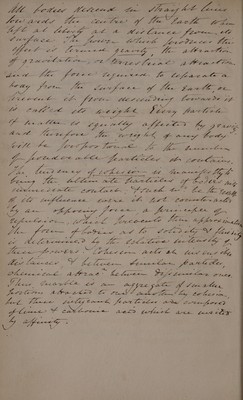 All bodies descend in straight lines
towards the centre of the Earth when
left at liberty at a distance from its
surface. The power which produces this
effect is termed gravity, the attraction
of gravitation, or terrestrial attraction
and the force required to separate a
body from the surface of the Earth, or
prevent it from descending towards it
is called its weight. Every particle
of matter is equally affected by gravity
and therefore the weight of any body
will be proportional to the number
of ponderable particles it contains.
The tendency of cohesion is to
bring the ultimate particles of bodies into
immediate contact & such would be the result
of its influence were it not counteracted
by an opposing force a principle of
repulsion which prevents their approximation
The form of bodies as to solidity & fluidity
is determined by the relative intensity of
these powers. Cohesion acts at insensible
distances & between similar particles,
chemical attrac. between dissimilar ones.
Thus marble is an aggregate of smaller
portions attached to one another by cohesion,
but these integrant particles are composed
of lime & carbonic acid which are united
by affinity.